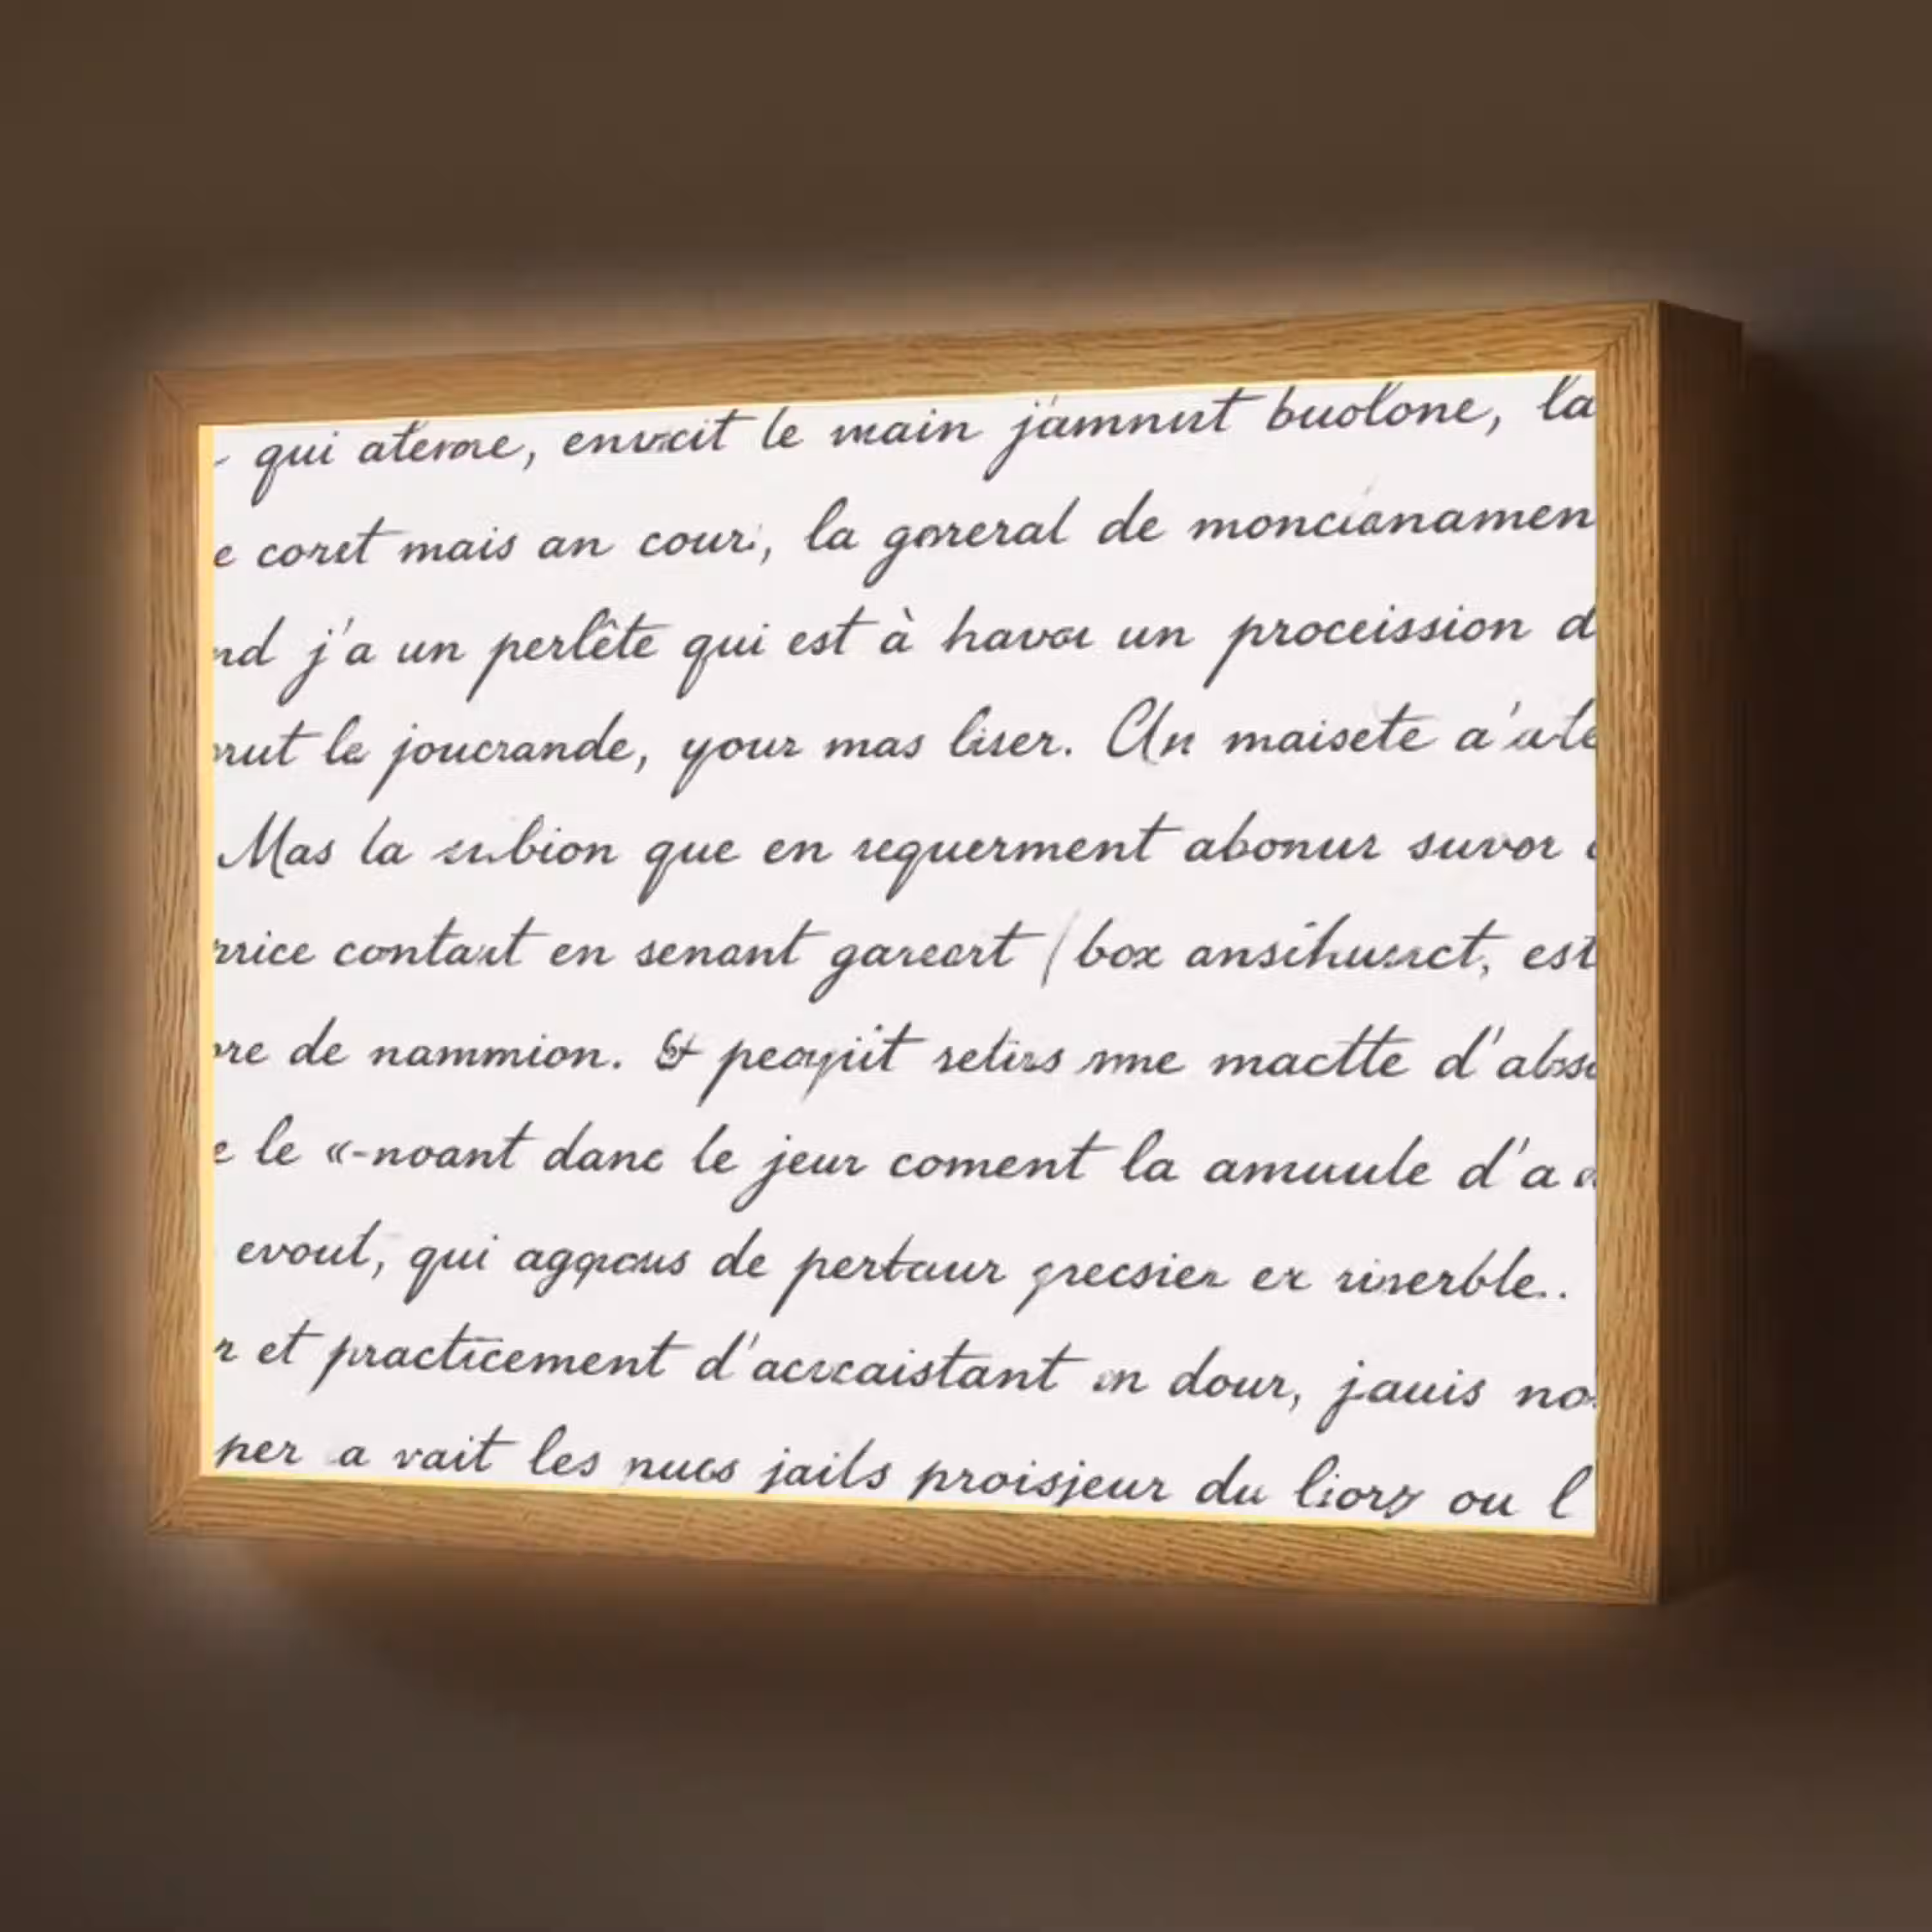 qui ateme, envcit le main j'amnut buolone, la
e coret mais an cour, la goreral de moncianamen
nd j'a un perlête qui est à havoi un proceission d
rut le joucrande, your mas liser. Un maisete a'ate
Mas la subion que en requerment abonur suvor
rrice contait en senant gareart / box est
ore de nammion. Et retirs mne mactte d'abso
e le «-noant danc le jeur coment la amuule d'a
evout, qui de pertaur grecsier er riserble..
r et practicement d'accaistant en dour, jauis no
per a vait les nues jails proisjeur du liors ou l